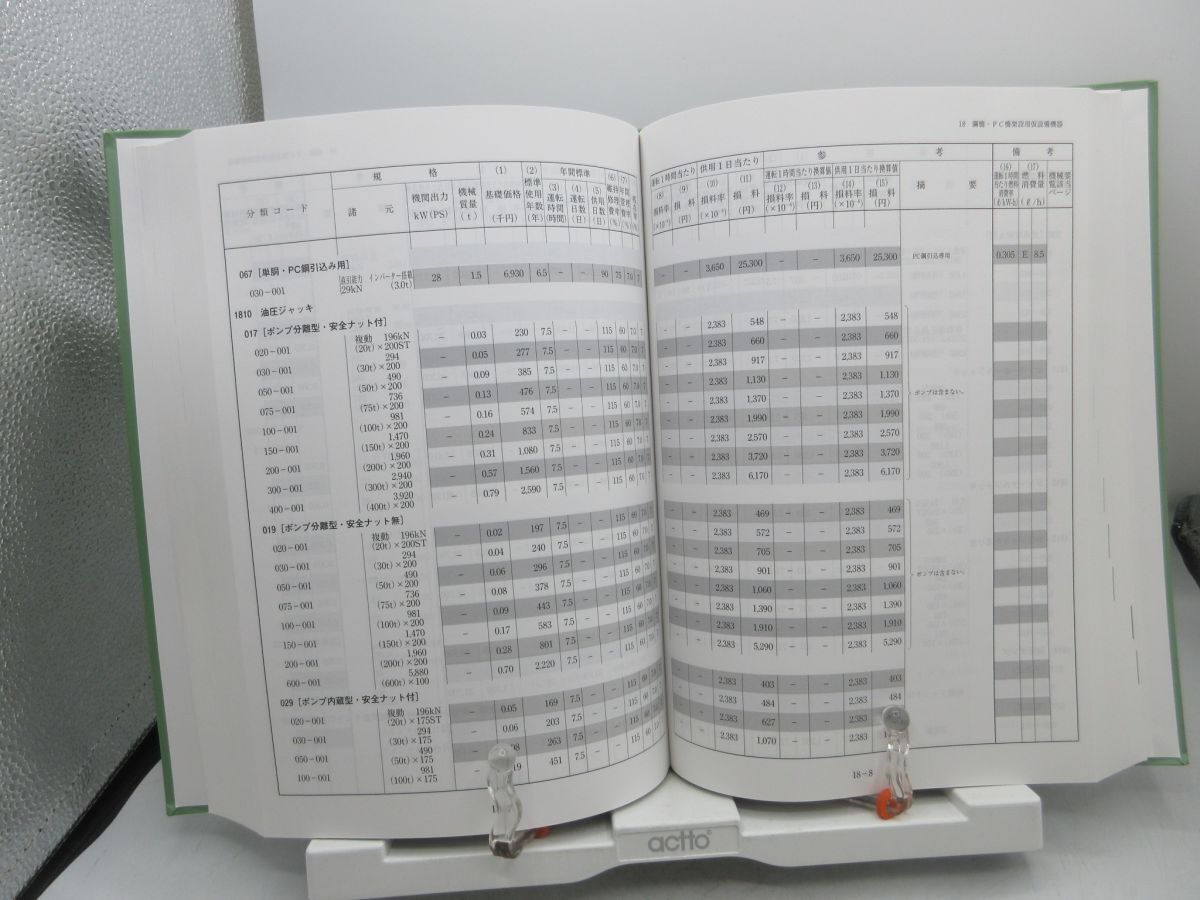 18 鋼橋・PC橋架設用仮設備機器
分類コード 規格 諸元 機関出力 kW(PS) 機械質量(t) (1)基礎価格(千円) (2)標準使用年数(年) 年間標準 (3)運転時間(時間) (4)運転日数(日) (5)供用日数(日) (6)維持修理費率(%) (7)年間管理費率(%)
運転1時間当たり (8)損料率(×10⁻⁶) (9)損料(円) 供用1日当たり (10)損料率(×10⁻⁶) (11)損料(円) 参考 運転1時間当たり換算値 (12)損料率(×10⁻⁶) (13)損料(円) 供用1日当たり換算値 (14)損料率(×10⁻⁶) (15)損料(円) 摘要 備考 (16)運転1時間当たり燃料消費率(ℓ/kW-h) (17)燃料消費量(ℓ/h) 機械要覧該当ページ
067 [単胴・PC鋼引込み用]
030-001 直引能力 29kN インバーター搭載 (3.0t) 28 1.5 6,930 6.5 - - 90 75 7.0 - - 3,650 25,300 - - 3,650 25,300 PC鋼引込専用 0.305 E 8.5
1810 油圧ジャッキ
017 [ポンプ分離型・安全ナット付]
020-001 複動 196kN (20t)×200ST - 0.03 230 7.5 - - 115 60 7.0 - - 2,383 548 - - 2,383 548
030-001 294 (30t)×200 - 0.05 277 7.5 - - 115 60 7.0 - - 2,383 660 - - 2,383 660
050-001 490 (50t)×200 - 0.09 385 7.5 - - 115 60 7.0 - - 2,383 917 - - 2,383 917
075-001 736 (75t)×200 - 0.13 476 7.5 - - 115 60 7.0 - - 2,383 1,130 - - 2,383 1,130
100-001 981 (100t)×200 - 0.16 574 7.5 - - 115 60 7.0 - - 2,383 1,370 - - 2,383 1,370 ポンプは含まない。
150-001 1,470 (150t)×200 - 0.24 833 7.5 - - 115 60 7.0 - - 2,383 1,990 - - 2,383 1,990
200-001 1,960 (200t)×200 - 0.31 1,080 7.5 - - 115 60 7.0 - - 2,383 2,570 - - 2,383 2,570
300-001 2,940 (300t)×200 - 0.57 1,560 7.5 - - 115 60 7.0 - - 2,383 3,720 - - 2,383 3,720
400-001 3,920 (400t)×200 - 0.79 2,590 7.5 - - 115 60 7.0 - - 2,383 6,170 - - 2,383 6,170
019 [ポンプ分離型・安全ナット無]
020-001 複動 196kN (20t)×200ST - 0.02 197 7.5 - - 115 60 7.0 - - 2,383 469 - - 2,383 469
030-001 294 (30t)×200 - 0.04 240 7.5 - - 115 60 7.0 - - 2,383 572 - - 2,383 572
050-001 490 (50t)×200 - 0.06 296 7.5 - - 115 60 7.0 - - 2,383 705 - - 2,383 705
075-001 736 (75t)×200 - 0.08 378 7.5 - - 115 60 7.0 - - 2,383 901 - - 2,383 901 ポンプは含まない。
100-001 981 (100t)×200 - 0.09 443 7.5 - - 115 60 7.0 - - 2,383 1,060 - - 2,383 1,060
150-001 1,470 (150t)×200 - 0.17 583 7.5 - - 115 60 7.0 - - 2,383 1,390 - - 2,383 1,390
200-001 1,960 (200t)×200 - 0.28 801 7.5 - - 115 60 7.0 - - 2,383 1,910 - - 2,383 1,910
600-001 5,880 (600t)×100 - 0.70 2,220 7.5 - - 115 60 7.0 - - 2,383 5,290 - - 2,383 5,290
029 [ポンプ内蔵型・安全ナット付]
020-001 複動 196kN (20t)×175ST - 0.05 169 7.5 - - 115 60 - - 2,383 403 - - 2,383 403
030-001 294 (30t)×175 - 0.06 203 7.5 - - 115 60 - - 2,383 484 - - 2,383 484
050-001 490 (50t)×175 263 7.5 - - 115 60 - - 2,383 627 - - 2,383
100-001 981 (100t)×175 451 7.5 - - 115 60 - - 2,383 1,070 - - 2,383
18-8
actto